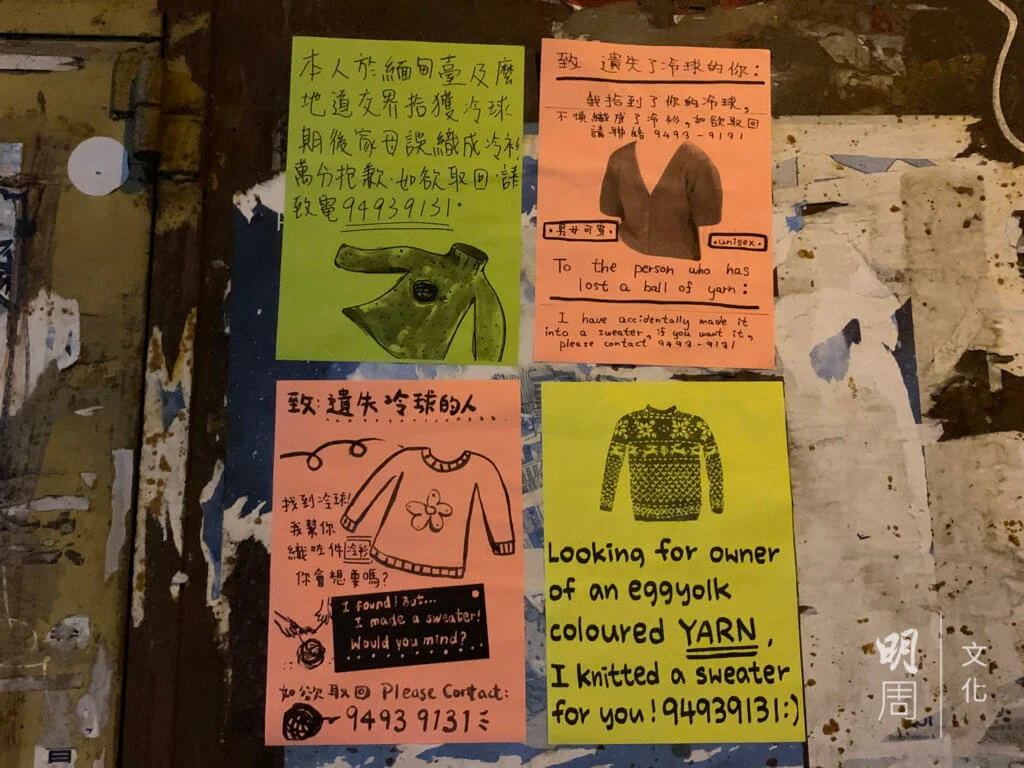 本人於緬甸臺及麼
地道交界拾獲冷球
期後家母誤織成冷衫
萬分抱歉．如欲取回．請
致電94939131。
致 遺失了冷球的你：
我拾到了你的冷球，
不慎織成了冷衫，如欲取回
請聯絡 9493-9131
・男女可穿・
・unisex・
To the person who has
lost a ball of yarn：
I have accidentally made it
into a sweater, if you want it,
please contact 9493-9131
致：遺失冷球的人
找到冷球!
我幫你
織咗件冷衫
你會想要嗎？
I found! But...
I made a sweater!
Would you mind?
如欲取回 Please Contact:
9493 9131
Looking for owner
of an eggyolk
coloured YARN,
I knitted a sweater
for you! 94939131:)
明周
文化